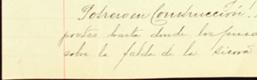 Potrero en Construcción!
postes hasta donde los
sobre la falda de la Sierra